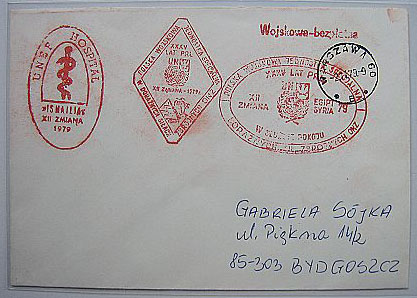 Wojskowa-bezpłatna
UNEF HOSPITAL
"ISMAILIA"
XII ZMIANA
1979
POLSKA WOJSKOWA JEDNOSTKA SPECJALNA
XXXV
LAT PRL
UN
XII ZMIANA - 1979
POLSKA WOJSKOWA JEDNOSTKA SPECJALNA
XXXV LAT PRL
UN
XII
ZMIANA
EGIPT
SYRIA
79
W SŁUŻBIE POKOJU
DORAŹNYCH SIŁ ZBROJNYCH ONZ
WARSZAWA 60
GABRIELA SÓJKA
ul. Piękna 14/2
85-303 BYDGOSZCZ